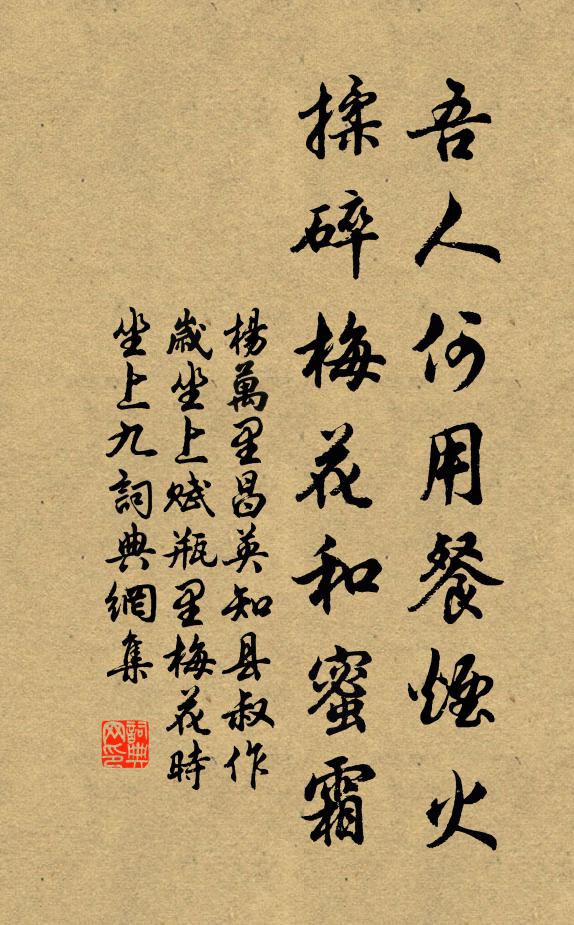 吾人何用餐煙火
揉碎梅花和蜜霜
楊萬里昌英知县叔作
歲坐上賦瓶里梅花時
坐上九詞典網集
詞典
网印